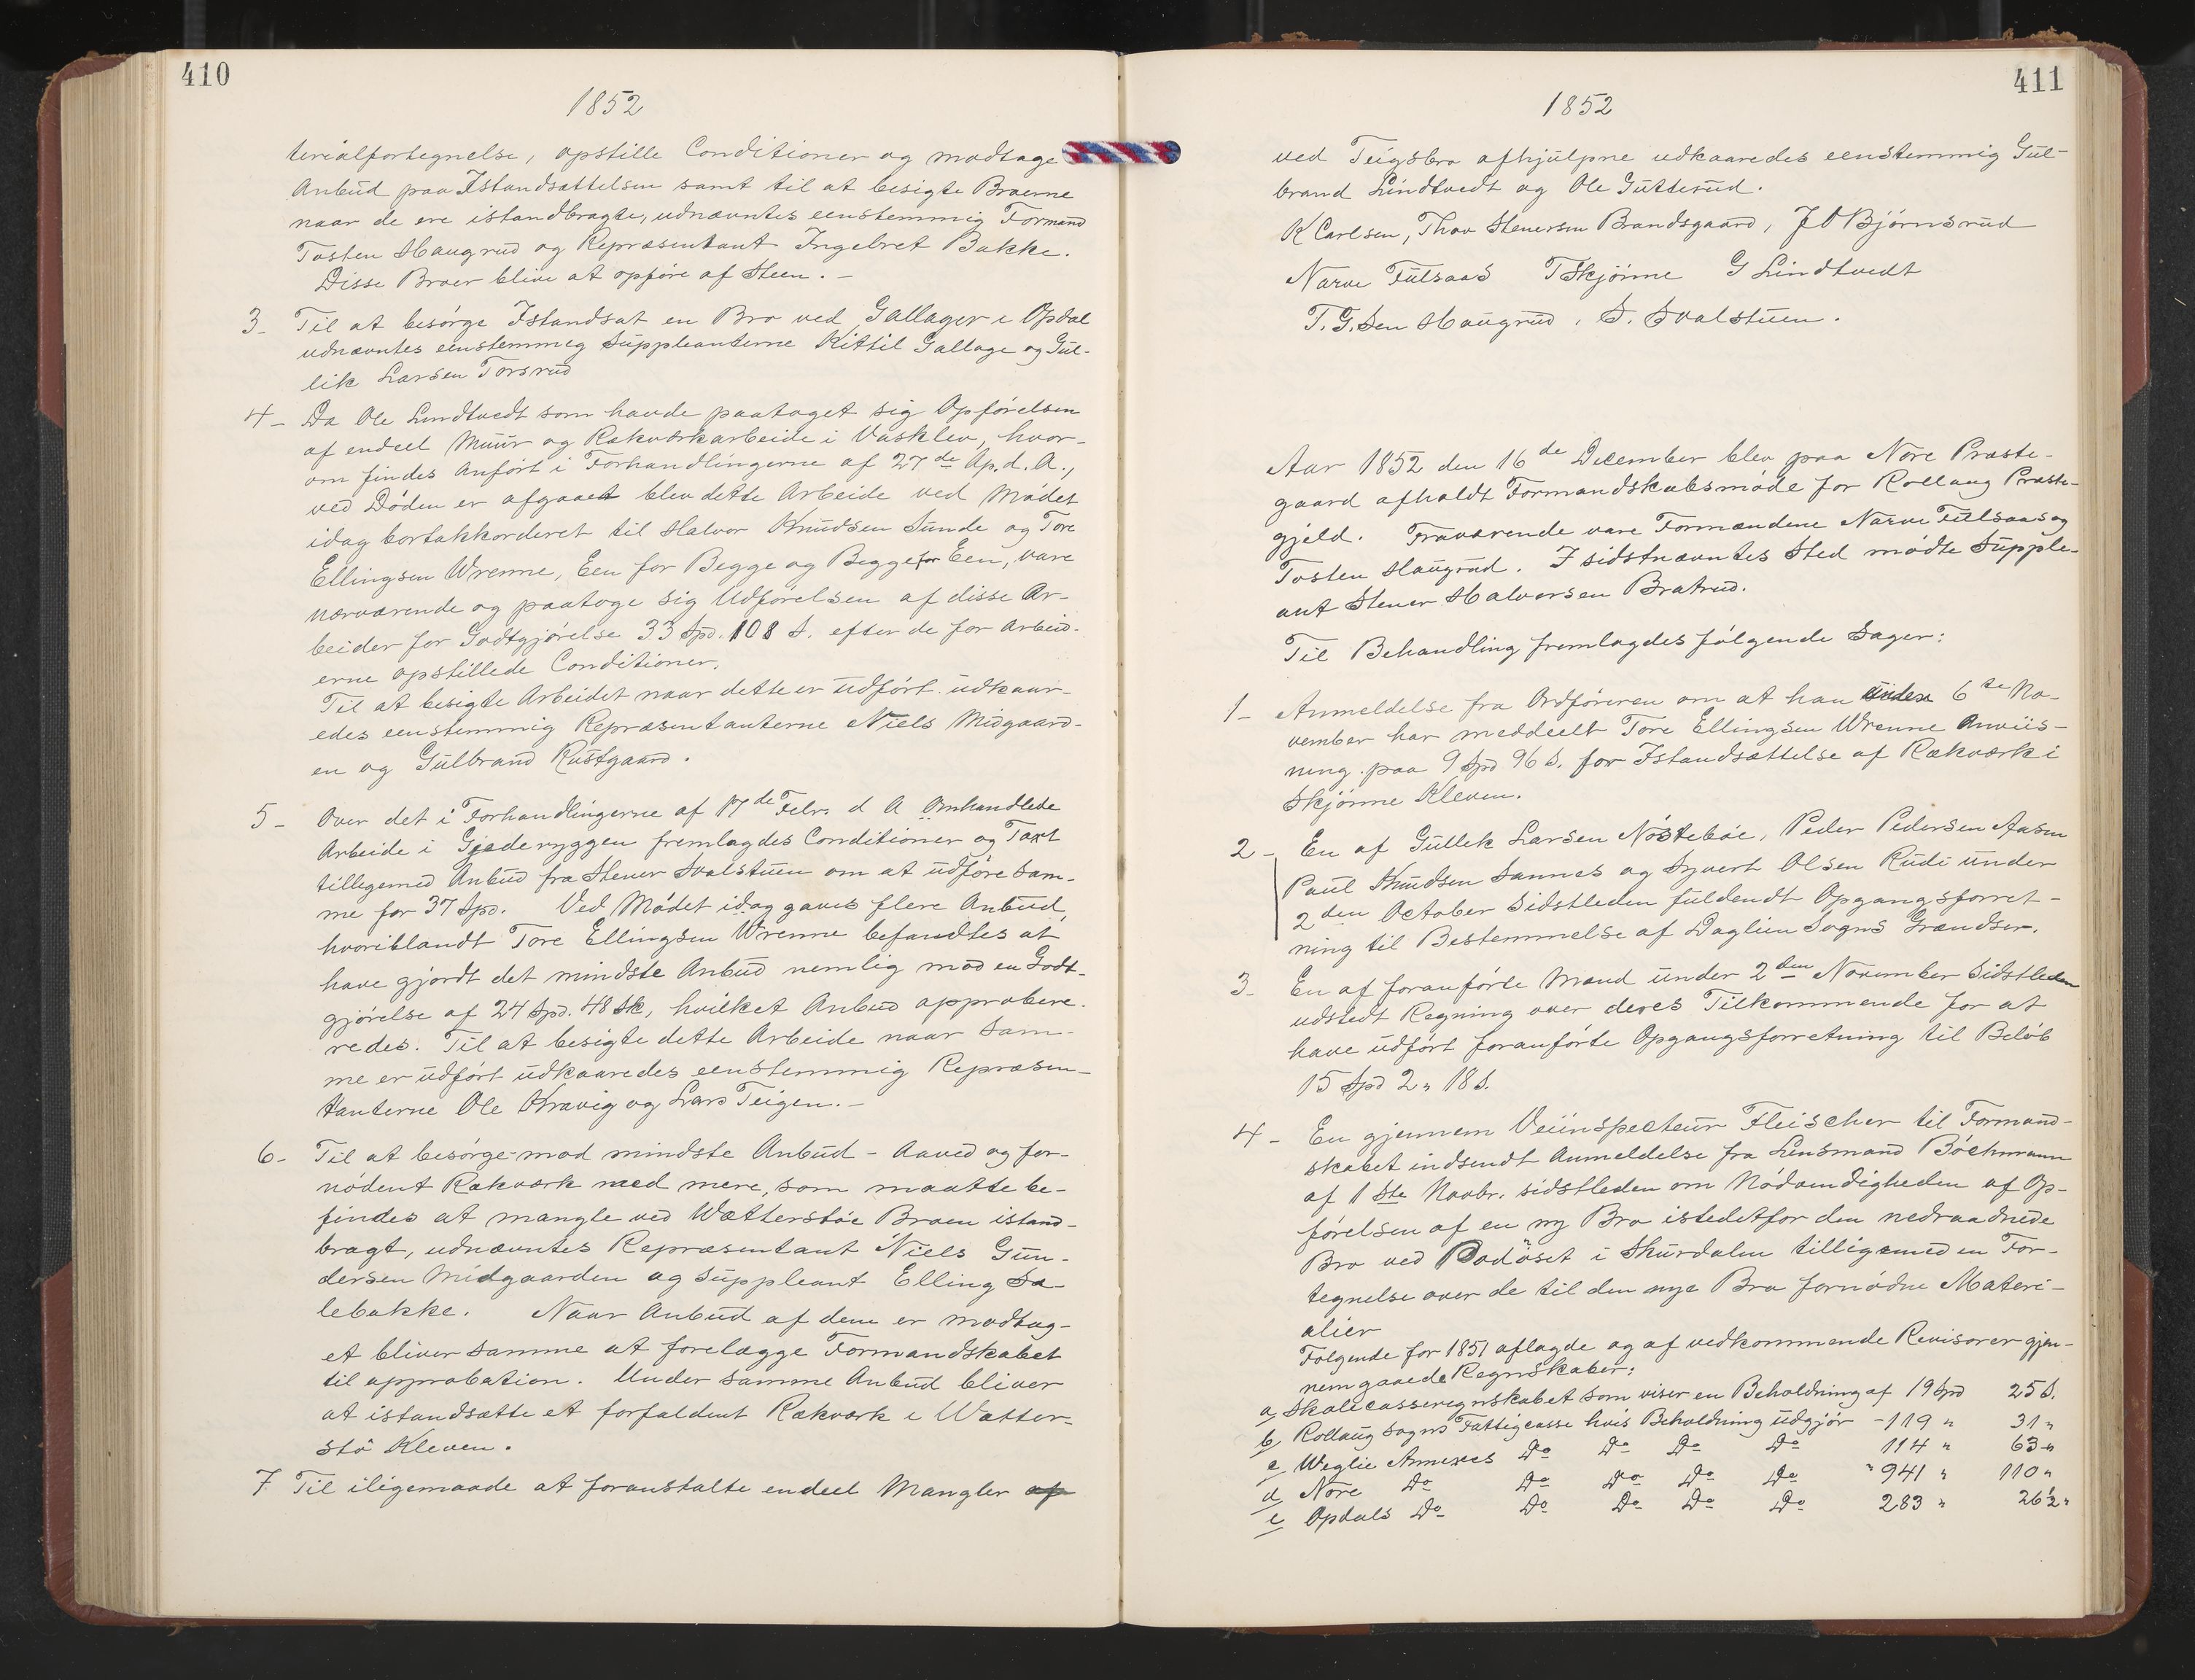 410
1852
terialfortegnelse, opstille Conditioner og modtage
Anbud paa Istandsættelsen samt til at besigte Broerne
naar de ere istandbragte, udnævntes eenstemmig Formand
Tosten Haugrud og Repræsentant Ingebret Bakke.
Disse Broer blive at opføre af Steen. –
3 – Til at besørge Istandsat en Bro ved Gallager i Opdal
udnævntes eenstemmig Suppleanterne Kittil Gallage og Gul-
lik Larsen Torsrud
4 – Da Ole Lindtvedt som havde paataget sig Opførelsen
af endeel Muur og Rækværkarbeide i Vasklev, hvor-
om findes Anført i Forhandlingerne af 27de Ap. d. A.,
ved Døden er afgaaet blev dette Arbeide ved Mødet
idag bortakkorderet til Halvor Knudsen Sunde og Tore
Ellingsen Wrenne, Een for Begge og Begge for Een, vare
nærværende og paatoge sig Udførelsen af disse Ar-
beider for Godtgjørelse 33 Spd. 108 S. efter de for Arbeid-
erne opstillede Conditioner.
Til at besigte Arbeidet naar dette er udført udkaar-
edes eenstemmig Repræsentanterne Niels Midgaard-
en og Gulbrand Rustgaard.
5 – Over det i Forhandlingerne af 17de Febr. d A Omhandlede
Arbeide i Gjæderyggen fremlagdes Conditioner og Taxt
tilligemed Anbud fra Stener Svalstuen om at udføre Sam-
me for 37 Spd. Ved Mødet idag gaves flere Anbud,
hvoriblandt Tore Ellingsen Wrenne befandtes at
have gjordt det mindste Anbud nemlig mod en Godt-
gjørelse af 24 Spd. 48 Sk, hvilket Anbud approbere-
redes. Til at besigte dette Arbeide naar Sam-
me er udført udkaaredes eenstemmig Repræsen-
tanterne Ole Kravig og Lars Teigen. –
6 – Til at besørge mod mindste Anbud – Aaved og for-
nødent Rækværk med mere, som maatte be-
findes at mangle ved Wætterstøe Broen istand-
bragt, udnævntes Repræsentant Niels Gun-
dersen Midgaarden og Suppleant Elling Sa-
lebakke. Naar Anbud af dem er modtag-
et bliver Samme at forelægge Formandskabet
til approbation. Under samme Anbud bliver
at istandsætte et forfaldent Rækværk i Wætter-
stø Kleven.
7. Til iligemaade at foranstalte endeel Mangler af
411
1852
ved Teigsbro afhjulpne udkaaredes eenstemmig Gul-
brand Lindtvedt og Ole Gutterud.
K Carlsen, Thov Stenersen Brandsgaard, J O Bjørnsrud
Narve Fulsaas T Skjønne G Lindtvedt
T. G. Sen Haugrud, S. Svalstuen.
Aar 1852 den 16de December blev paa Nore Præste-
gaard afholdt Formandskabsmøde for Rollaug Præste-
gjeld. Fraværende vare Formændene Narve Fulsaas og
Tosten Haugrud. I sidstnævntes Sted mødte Supple-
ant Stener Halvorsen Bratrud.
Til Behandling fremlagdes følgende Sager:
1 – Anmeldelse fra Ordføreren om at han under 6te No-
vember har meddeelt Tore Ellingsen Wrenne Anviis-
ning paa 9 Spd 96 S. for Istandsættelse af Rækværk i
Skjønne Kleven.
2 – En af Gullek Larsen Nøstebøe, Peder Pedersen Aasen
Paul Knudsen Sannes og Syvert Olsen Rudi under
2den October Sidstleden fuldendt Opgangsforret-
ning til Bestemmelse af Daglien Sogns Grændser.
3 – En af foranførte Mænd under 2den November Sidstleden
udstedt Regning over deres Tilkommende for at
have udført foranførte Opgangsforretning til Beløb
15 Spd 2 „ 18 S.
4 – En gjennem Veiinspecteur Fleischer til Formand-
skabet indsendt Anmeldelse fra Lensmand Böchmann
af 1ste Novbr. sidstleden om Nødvendigheden af Op-
førelsen af en ny Bro istedetfor den nedraadnede
Bro ved Rødøset i Skurdalen tilligemed en For-
tegnelse over de til den nye Bro fornødne Materi-
alier
Følgende for 1851 aflagde og af vedkommende Revisorer gjen-
nemgaaede Regnskaber:
a, Skolecasseregnskabet som viser en Beholdning af 19 Spd 25 S.
b, Rollaug Sogns Fattigcasse hvis Beholdning udgjør – 119 „ 31 „
c, Weglie Annexes Do Do Do Do 114 „ 63 „
d, Nore Do Do Do Do Do „ 941 „ 110 „
e, Opdals Do Do Do Do Do 283 „ 26½ „